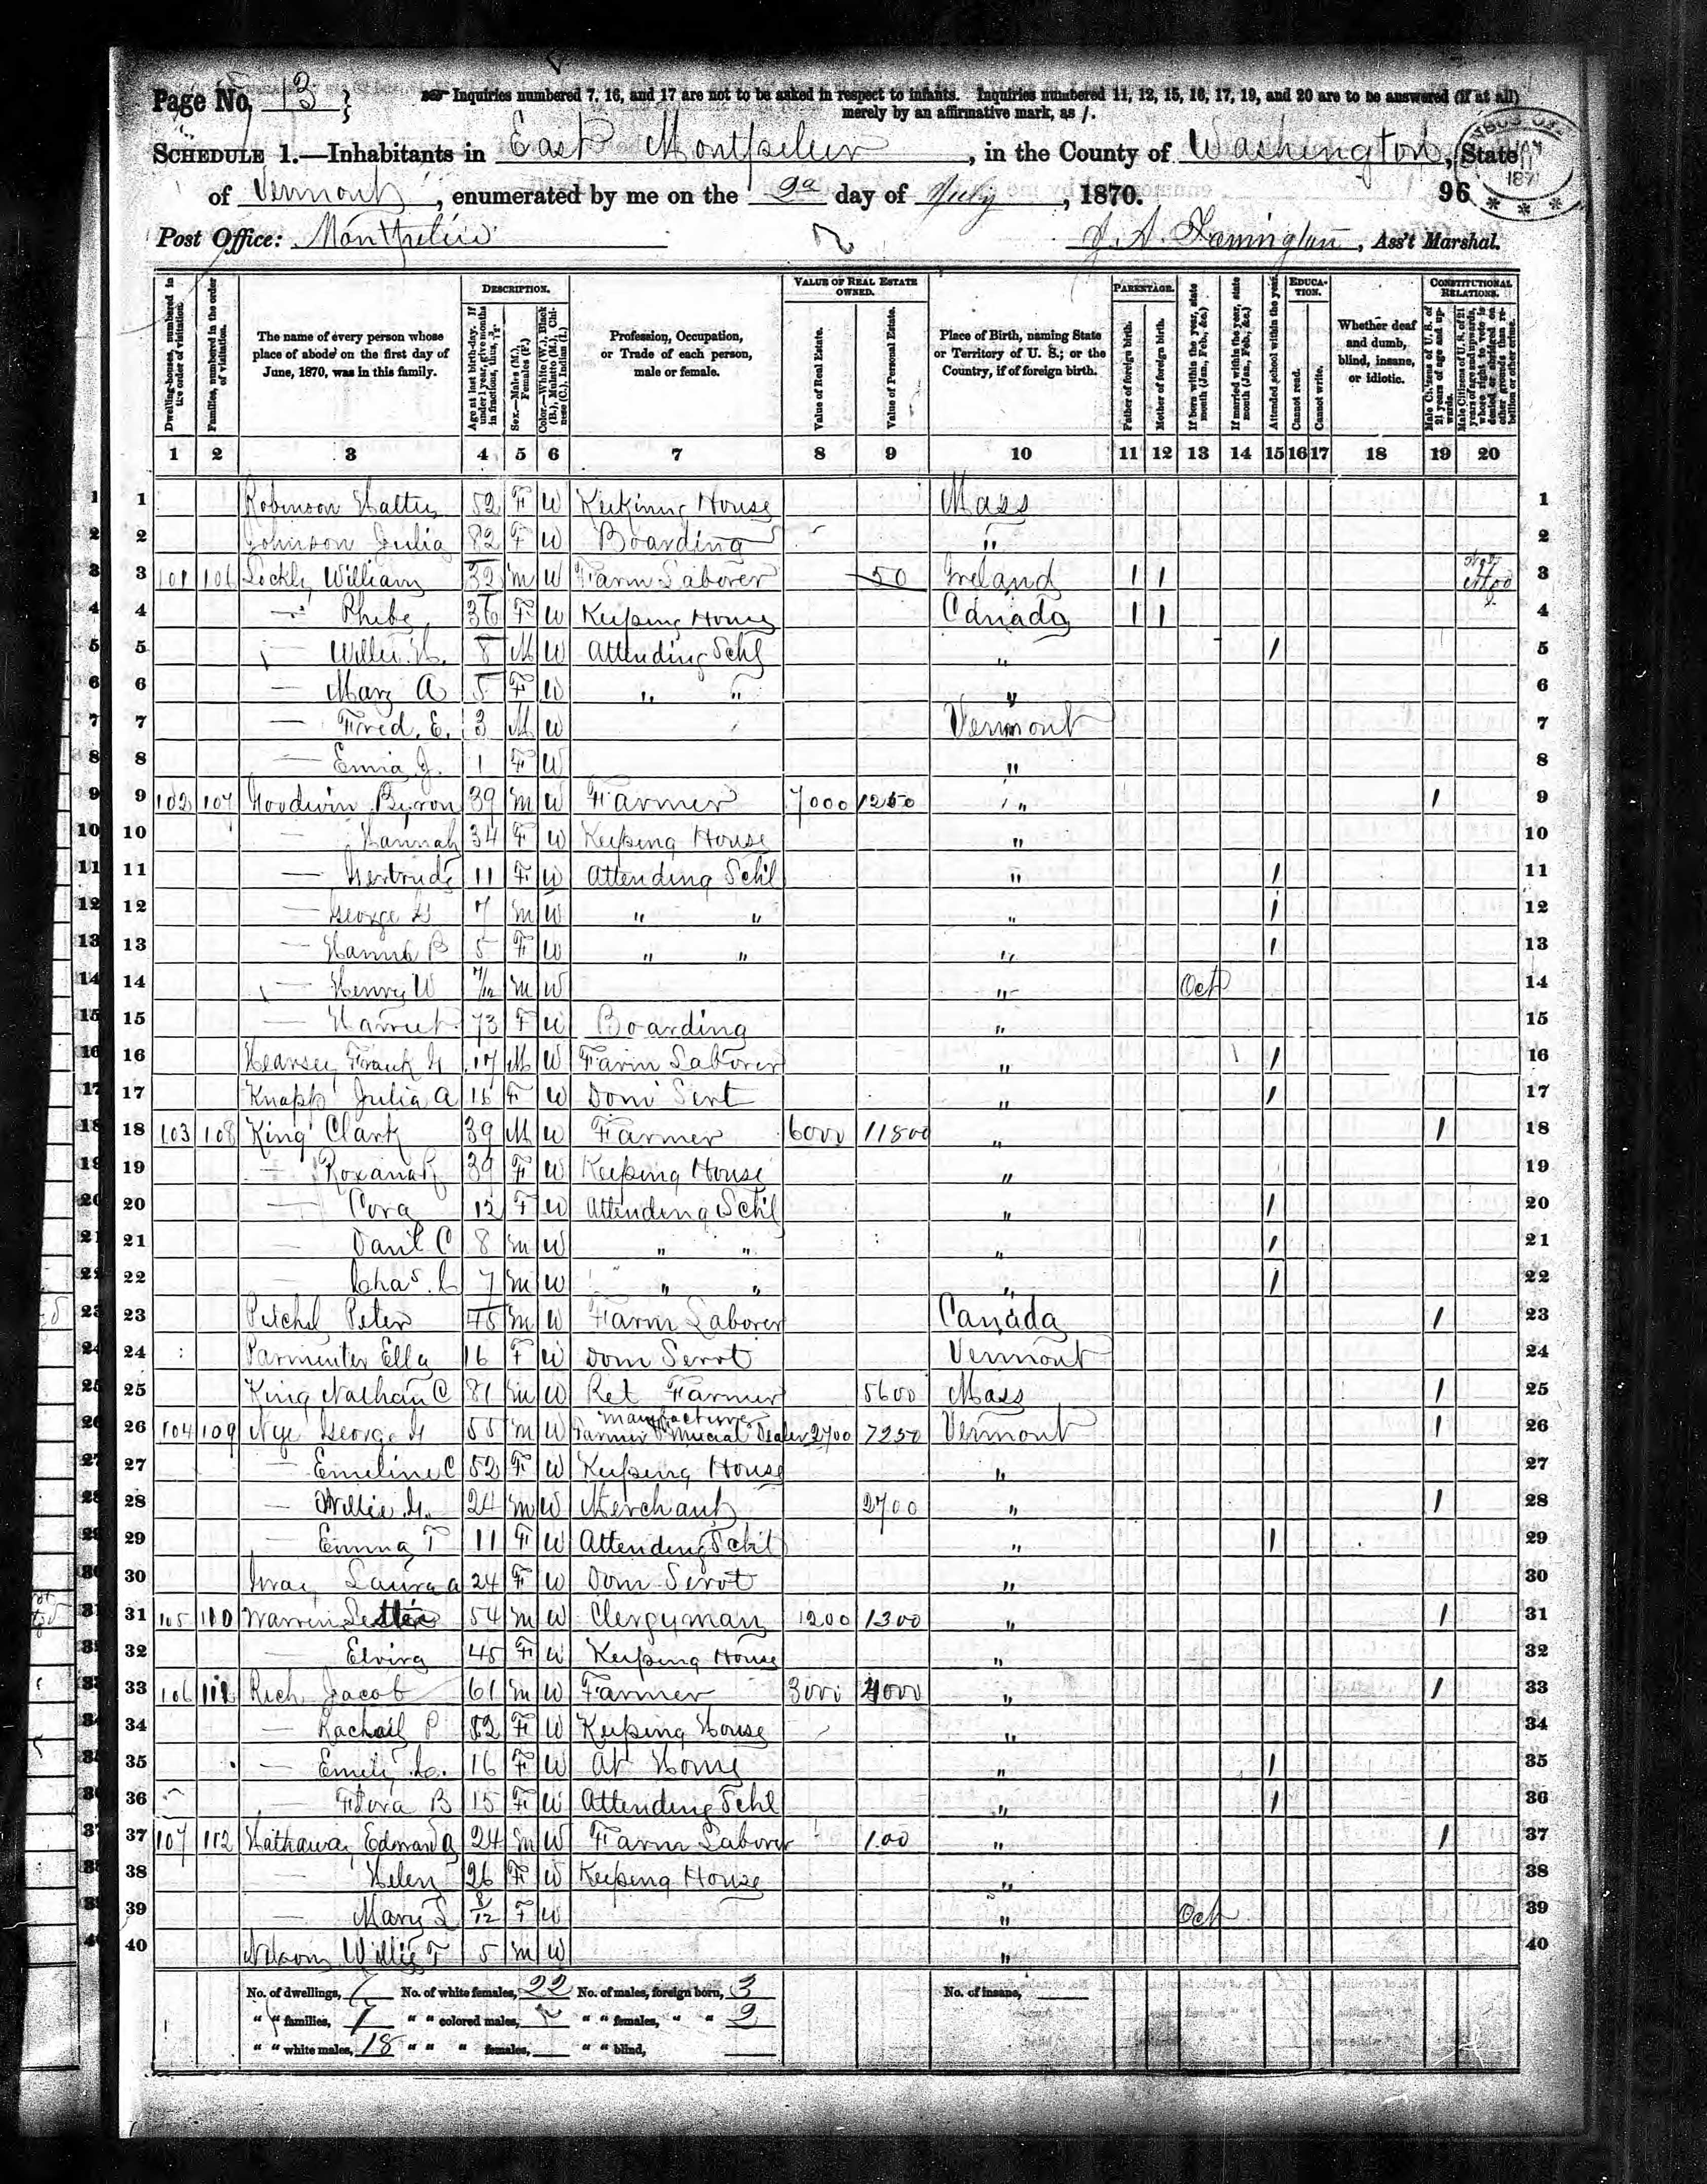 Page No. 13
Inquiries numbered 7, 16, and 17 are not to be asked in respect to infants. Inquiries numbered 11, 12, 15, 16, 17, 19, and 20 are to be answered (if at all)
merely by an affirmative mark, as /.
SCHEDULE 1.—Inhabitants in East Montpelier, in the County of Washington, State
of Vermont, enumerated by me on the 9th day of July, 1870. 96
Post Office: Montpelier, Ass't Marshal.
DESCRIPTION. VALUE OF REAL ESTATE OWNED. PARENTAGE. EDUCATION. CONSTITUTIONAL RELATIONS.
Dwelling-houses, numbered in the order of visitation.
Families, numbered in the order of visitation.
The name of every person whose place of abode on the first day of June, 1870, was in this family.
Age at last birth-day. If under 1 year, give months in fractions, thus, 3/12.
Sex.—Males (M.), Females (F.)
Color.—White (W.), Black (B.), Mulatto (M.), Chinese (C.), Indian (I.)
Profession, Occupation, or Trade of each person, male or female.
Value of Real Estate.
Value of Personal Estate.
Place of Birth, naming State or Territory of U. S.; or the Country, if of foreign birth.
Father of foreign birth.
Mother of foreign birth.
If born within the year, state month (Jan., Feb., &c.)
If married within the year, state month (Jan., Feb., &c.)
Attended school within the year.
Cannot read.
Cannot write.
Whether deaf and dumb, blind, insane, or idiotic.
Male Citizens of U. S. of 21 years of age and upwards.
Male Citizens of U. S. of 21 years of age and upwards, where right to vote is denied or abridged on other grounds than rebellion or other crime.
1 2 3 4 5 6 7 8 9 10 11 12 13 14 15 16 17 18 19 20
1 Robinson 52 F W Keeping House Mass 1
2 Johnson Julia 82 F W Boarding " 2
3 101 106 William 32 M W Farm Laborer 50 Ireland 1 1 3
4 — Phebe 36 F W Keeping House Canada 1 1 4
5 — H. 8 M W Attending Schl " / 5
6 — Mary A 5 F W " " " 6
7 — Fred. E. 3 M W Vermont 7
8 — J. 1 F W " 8
9 102 107 Goodwin Byron 39 M W Farmer 7000 1250 " / 9
10 — Hannah 34 F W Keeping House " 10
11 — Gertrude 11 F W Attending Schl " / 11
12 — George 7 M W " " " / 12
13 — B 5 F W " " " / 13
14 — Henry W 7/12 M W " Oct 14
15 — Harriet 73 F W Boarding " 15
16 Frank 17 M W Farm Laborer " / 16
17 Knapp Julia A F W Dom Sert " / 17
18 103 108 King Clark 39 M W Farmer 6000 11800 " / 18
19 — Roxana 39 F W Keeping House " 19
20 — Cora 12 F W Attending Schl " / 20
21 — Danl C 8 M W " " " / 21
22 — Chas. 7 M W " " " / 22
23 Peter 45 M W Farm Laborer Canada / 23
24 Parmenter Ella 16 F W Dom Servt Vermont 24
25 King Nathan C 81 M W Ret Farmer 5600 Mass / 25
26 104 109 Nye George 55 M W Farmer manufacturer Dealer 2700 7250 Vermont / 26
27 — Emeline C 52 F W Keeping House " 27
28 — Willie 24 M W Merchant 2700 " / 28
29 — Emma T 11 F W Attending Schl " / 29
30 Laura A 24 F W Dom Servt " 30
31 105 110 Warren 54 M W Clergyman 1200 1300 " / 31
32 — Elvira 45 F W Keeping House " 32
33 106 111 Rich Jacob 61 M W Farmer 3000 4000 " / 33
34 — Rachail P 52 F W Keeping House " 34
35 — Emily 16 F W At Home " / 35
36 — Flora B 15 F W Attending Schl " / 36
37 107 112 Hathaway Edward 24 M W Farm Laborer 100 " / 37
38 — Helen 26 F W Keeping House " 38
39 — Mary L 8/12 F W " Oct 39
40 Nelson Willie T 5 M W " 40
No. of dwellings, 7 No. of white females, 22 No. of males, foreign born, 3 No. of insane,
" " families, 7 " " colored males, " " females, " " 2
" " white males, 18 " " " females, " " blind,